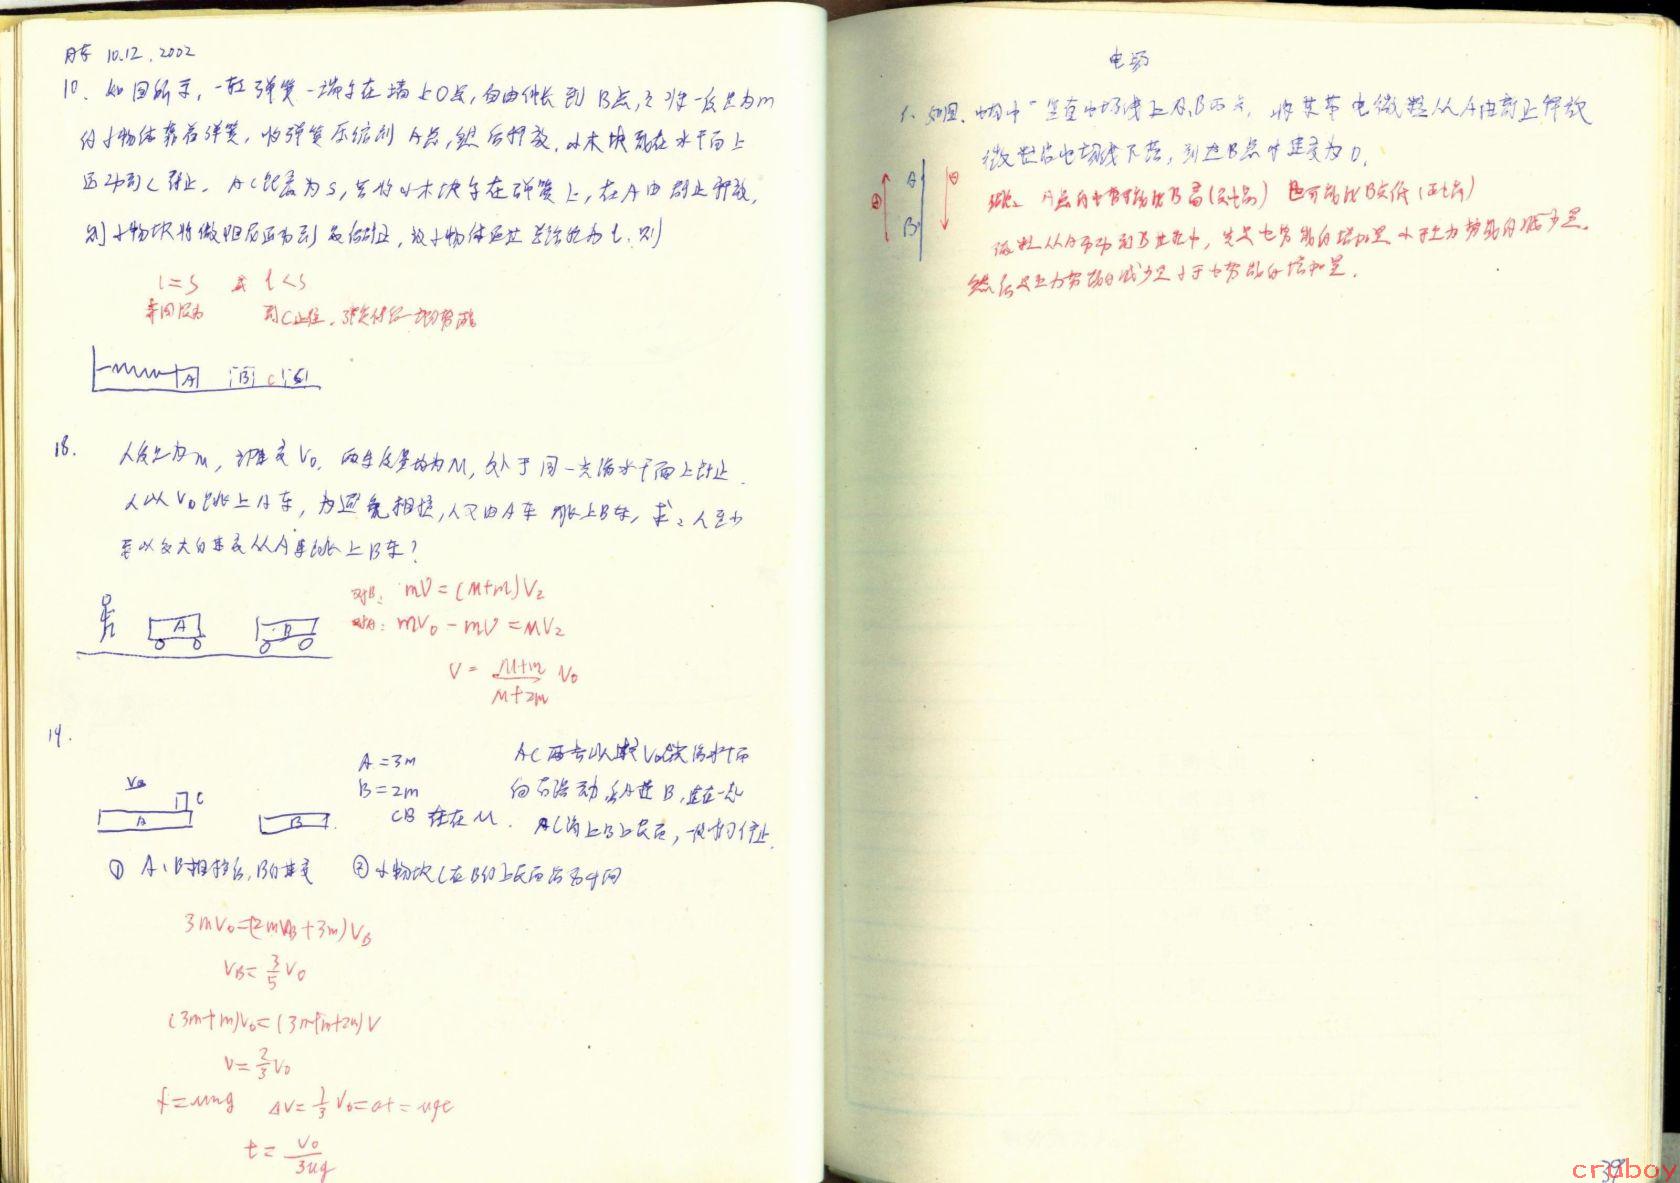 月考 10.12.2002
10. 如图所示,一轻弹簧一端在墙上O点,自由伸长到B点,今将一质量为m
的小物体靠着弹簧,将弹簧压缩到A点,然后释放,小木块能在水平面上
运动到C静止. AC距离为S,若将小木块在弹簧上,在A由静止释放,
则小物块将做阻尼运动到最后静止,设小物体通过总路程为l.则
l=S 或 l<S
到C止住,弹簧
A B C
18. 人质量为m, 速度V0, 两车质量均为M,处于同一光滑水平面上静止.
人以V0跳上A车,为避免相撞,人又由A车跳上B车,求:人至少
要以多大的速度从A车跳上B车?
对B: mV=(M+m)V2
对A: mV0-mV=MV2
V= M+m / M+2m V0
A B
19.
A=3m AC两者以速度V0
B=2m 向右滑动,后A撞B,
CB存在μ. AC滑上B上表面,
V0 C
A B
① A、B相撞后,B的速度 ② 小物块C在B的上表面滑动时间
3mV0=(2m+3m)VB
VB=3/5 V0
(3m+m)V0=(3m+m+2m)V
V=2/3 V0
f=μmg ΔV=1/3 V0=at=μgt
t= V0 / 3μg
电场
1. 如图,电场中一竖直电场线上A,B两点,将某带电微粒从A由静止释放
微粒沿电场线下落,到达B点时速度为0.
A
B
A点的电势可能比B高(负电荷) 也可能比B点低(正电荷)
微粒从A运动到B过程中,先是电势能的增加量小于重力势能的减少量.
然后是重力势能的减少量小于电势能的增加量.
39
cruboy